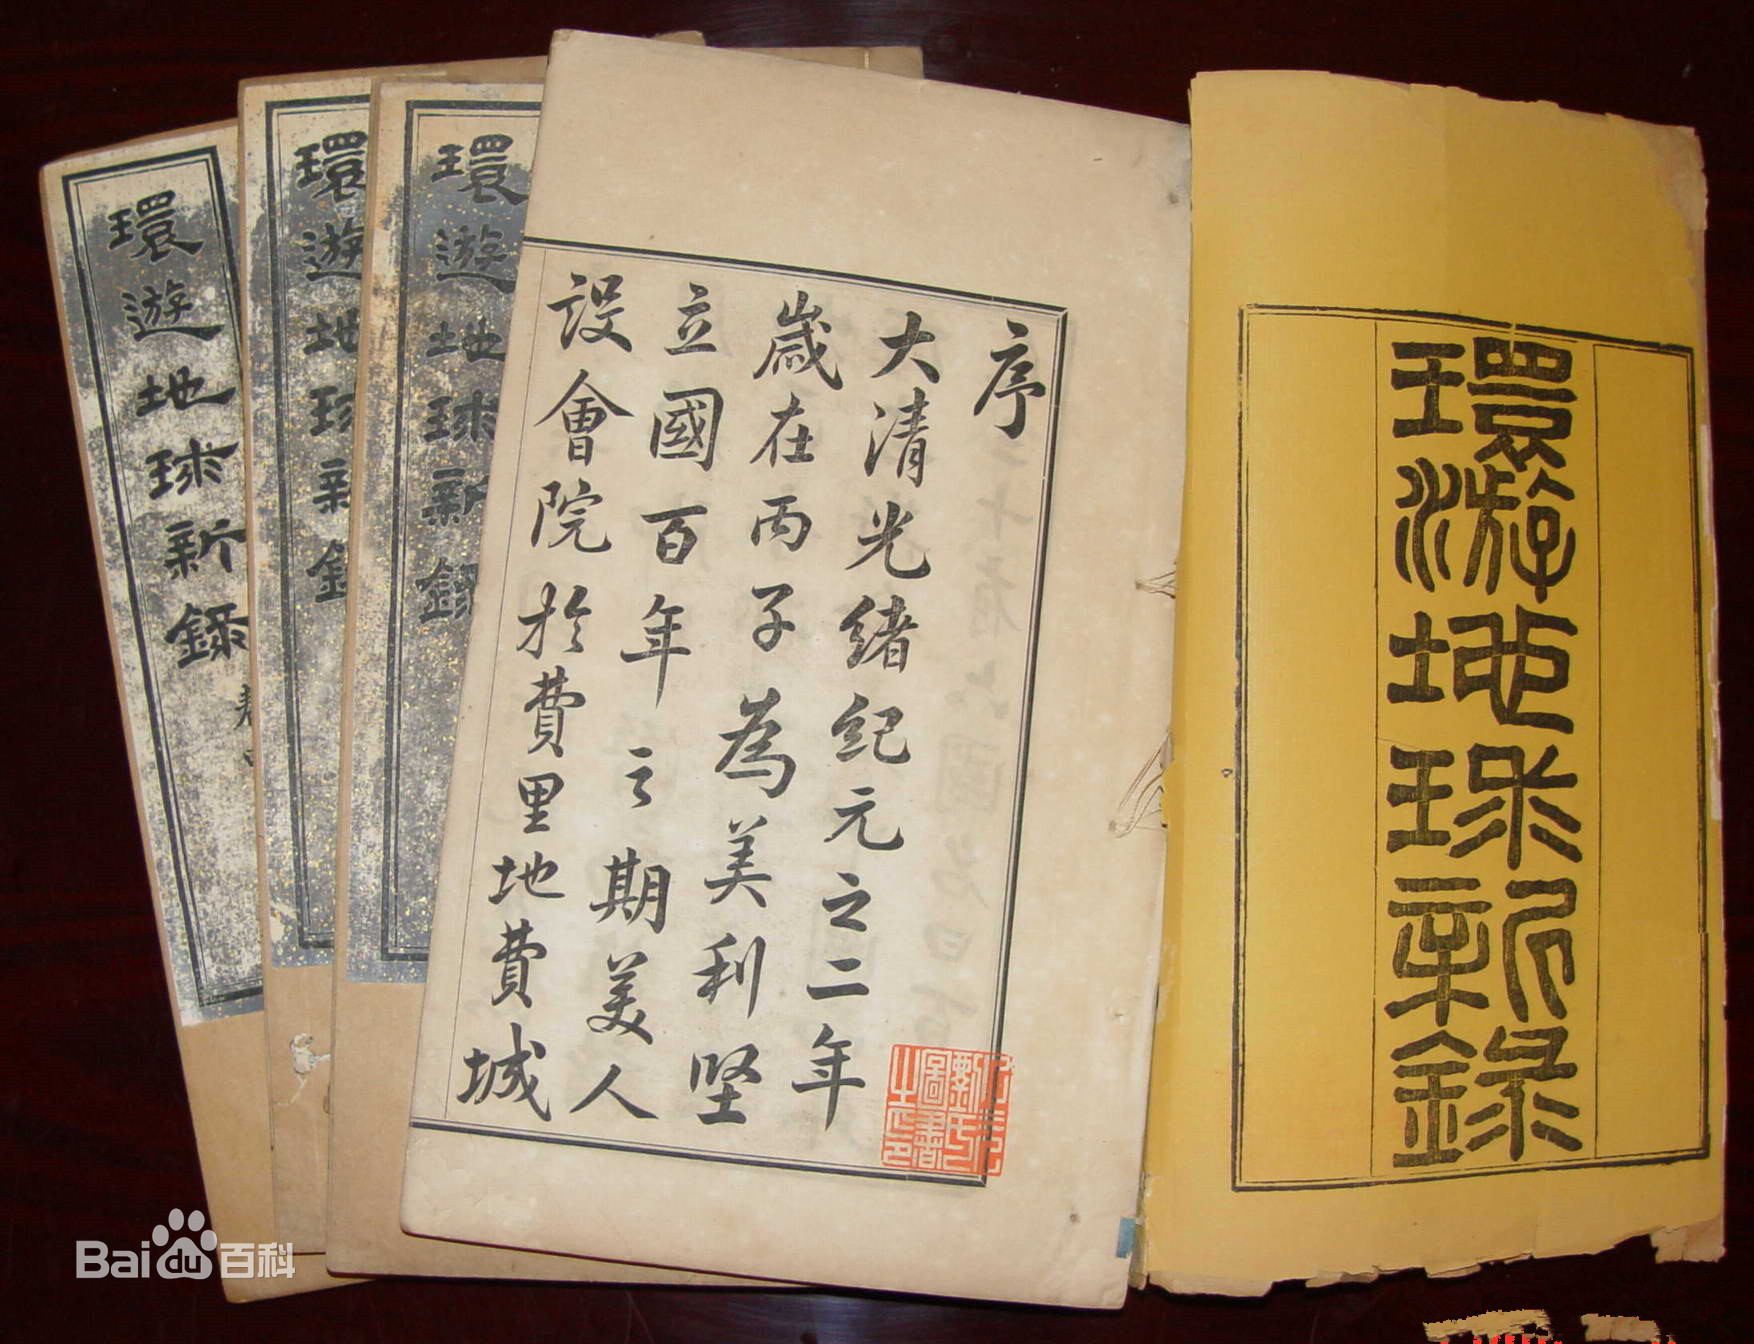 環游地球新錄
序
大清光緒紀元之二年
歲在丙子為美利堅
立國百年之期美人
設會院於費里地費城
環遊地球新錄
環遊地球新錄
環遊地球新錄
Baidu百科